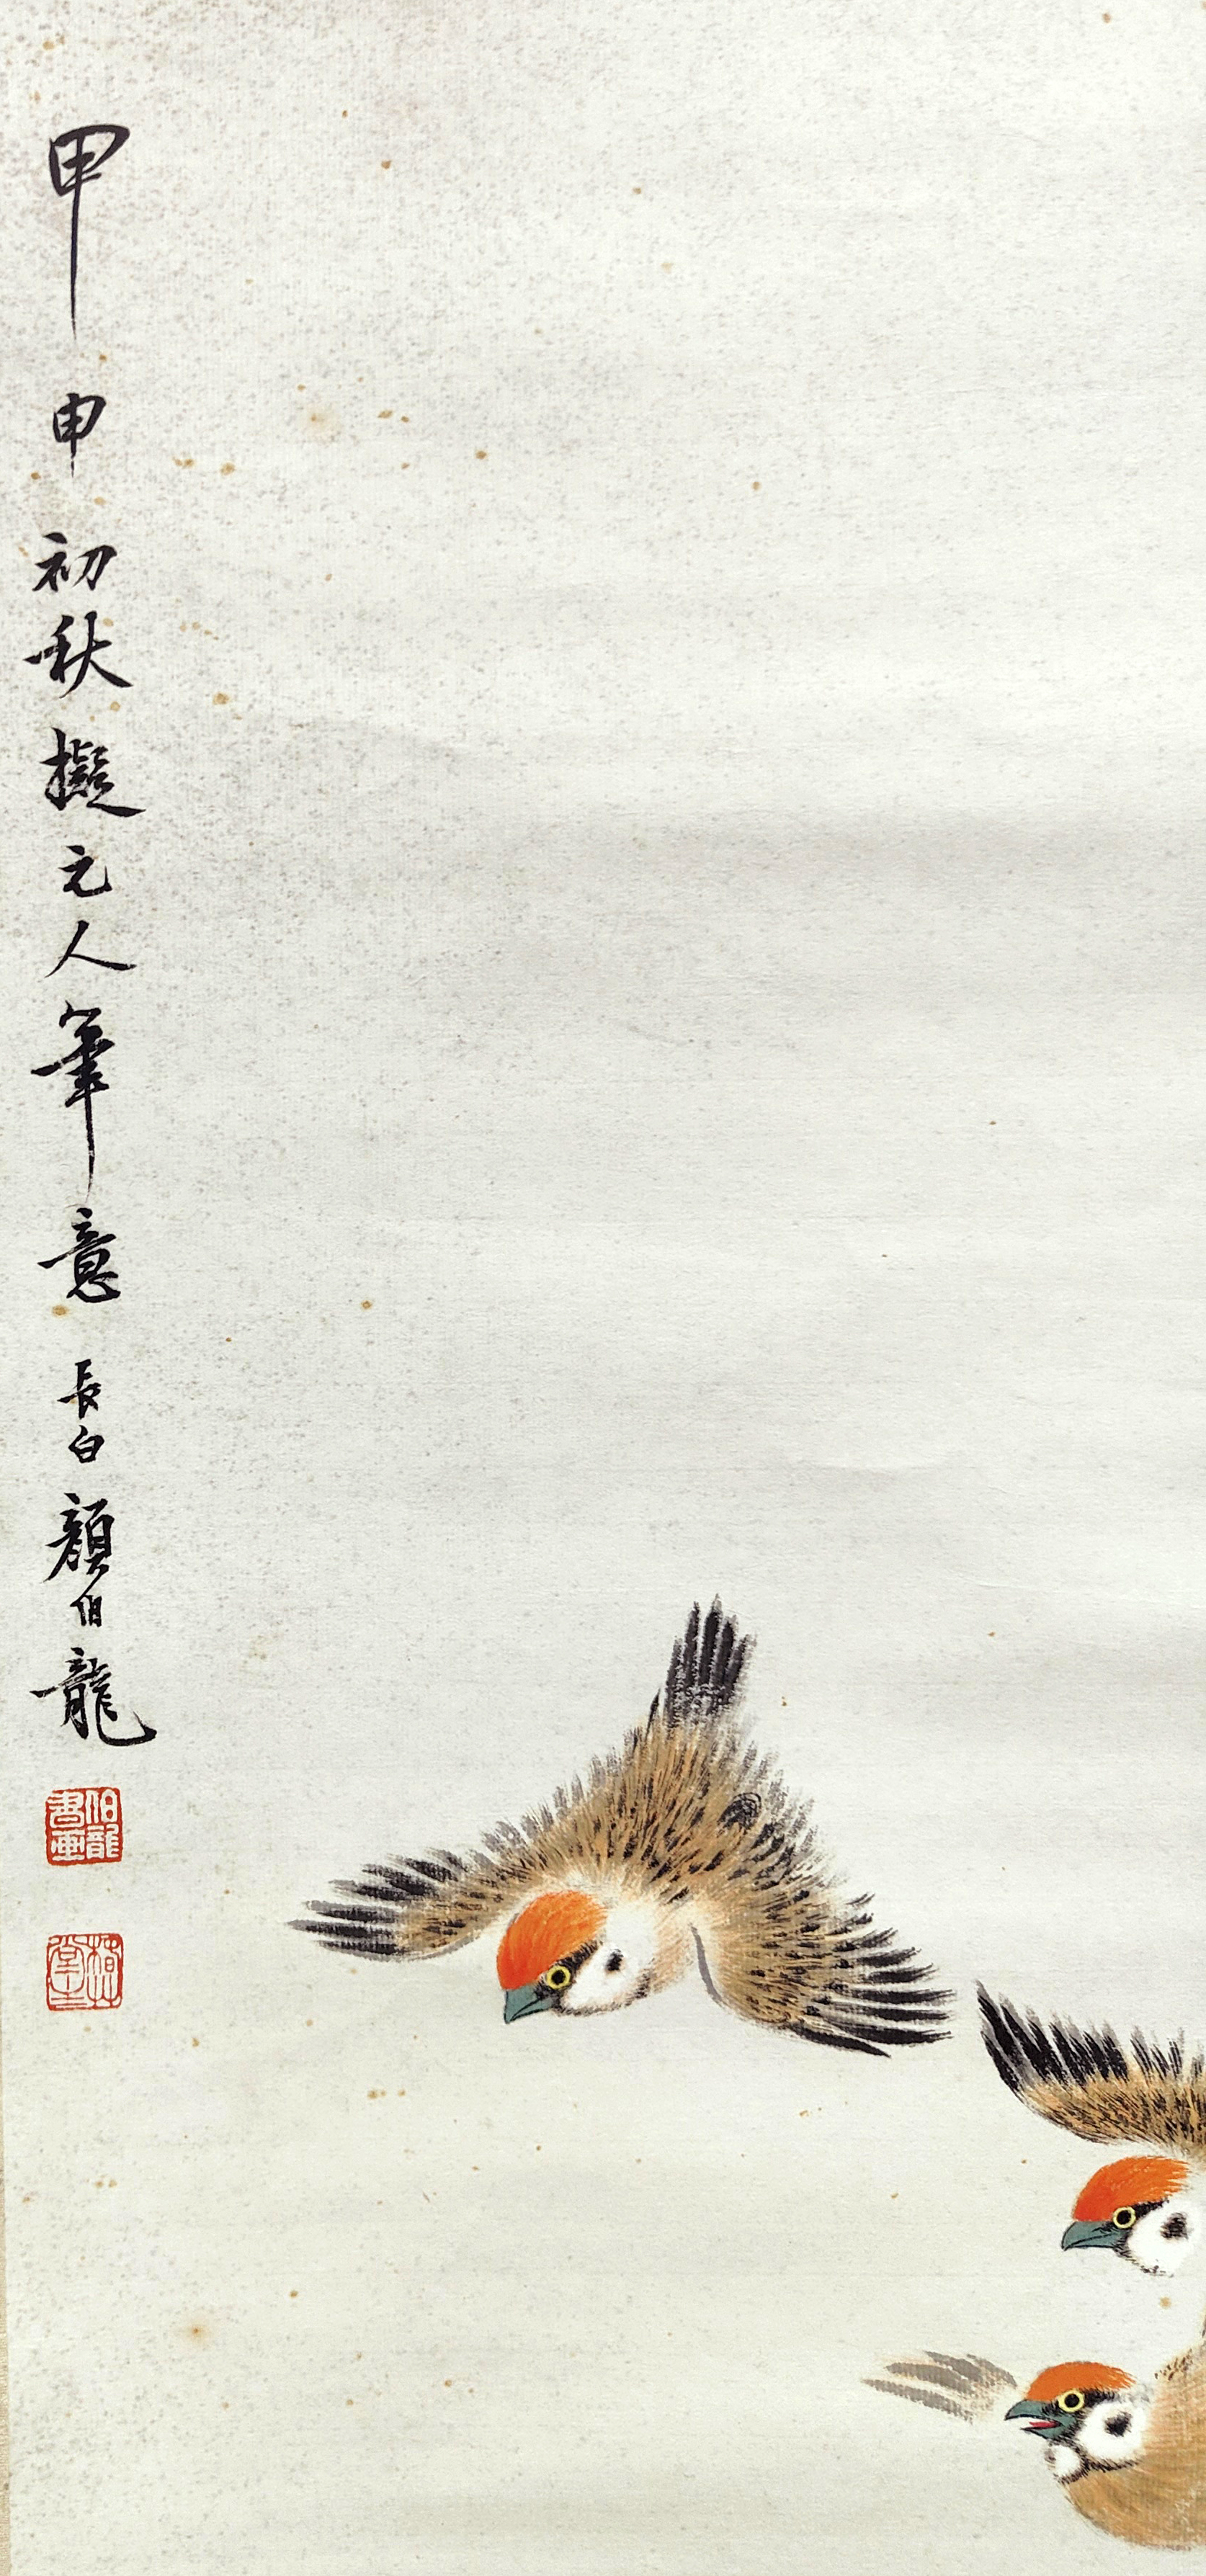 甲申初秋擬元人筆意長白顏伯龍
伯龍書畫